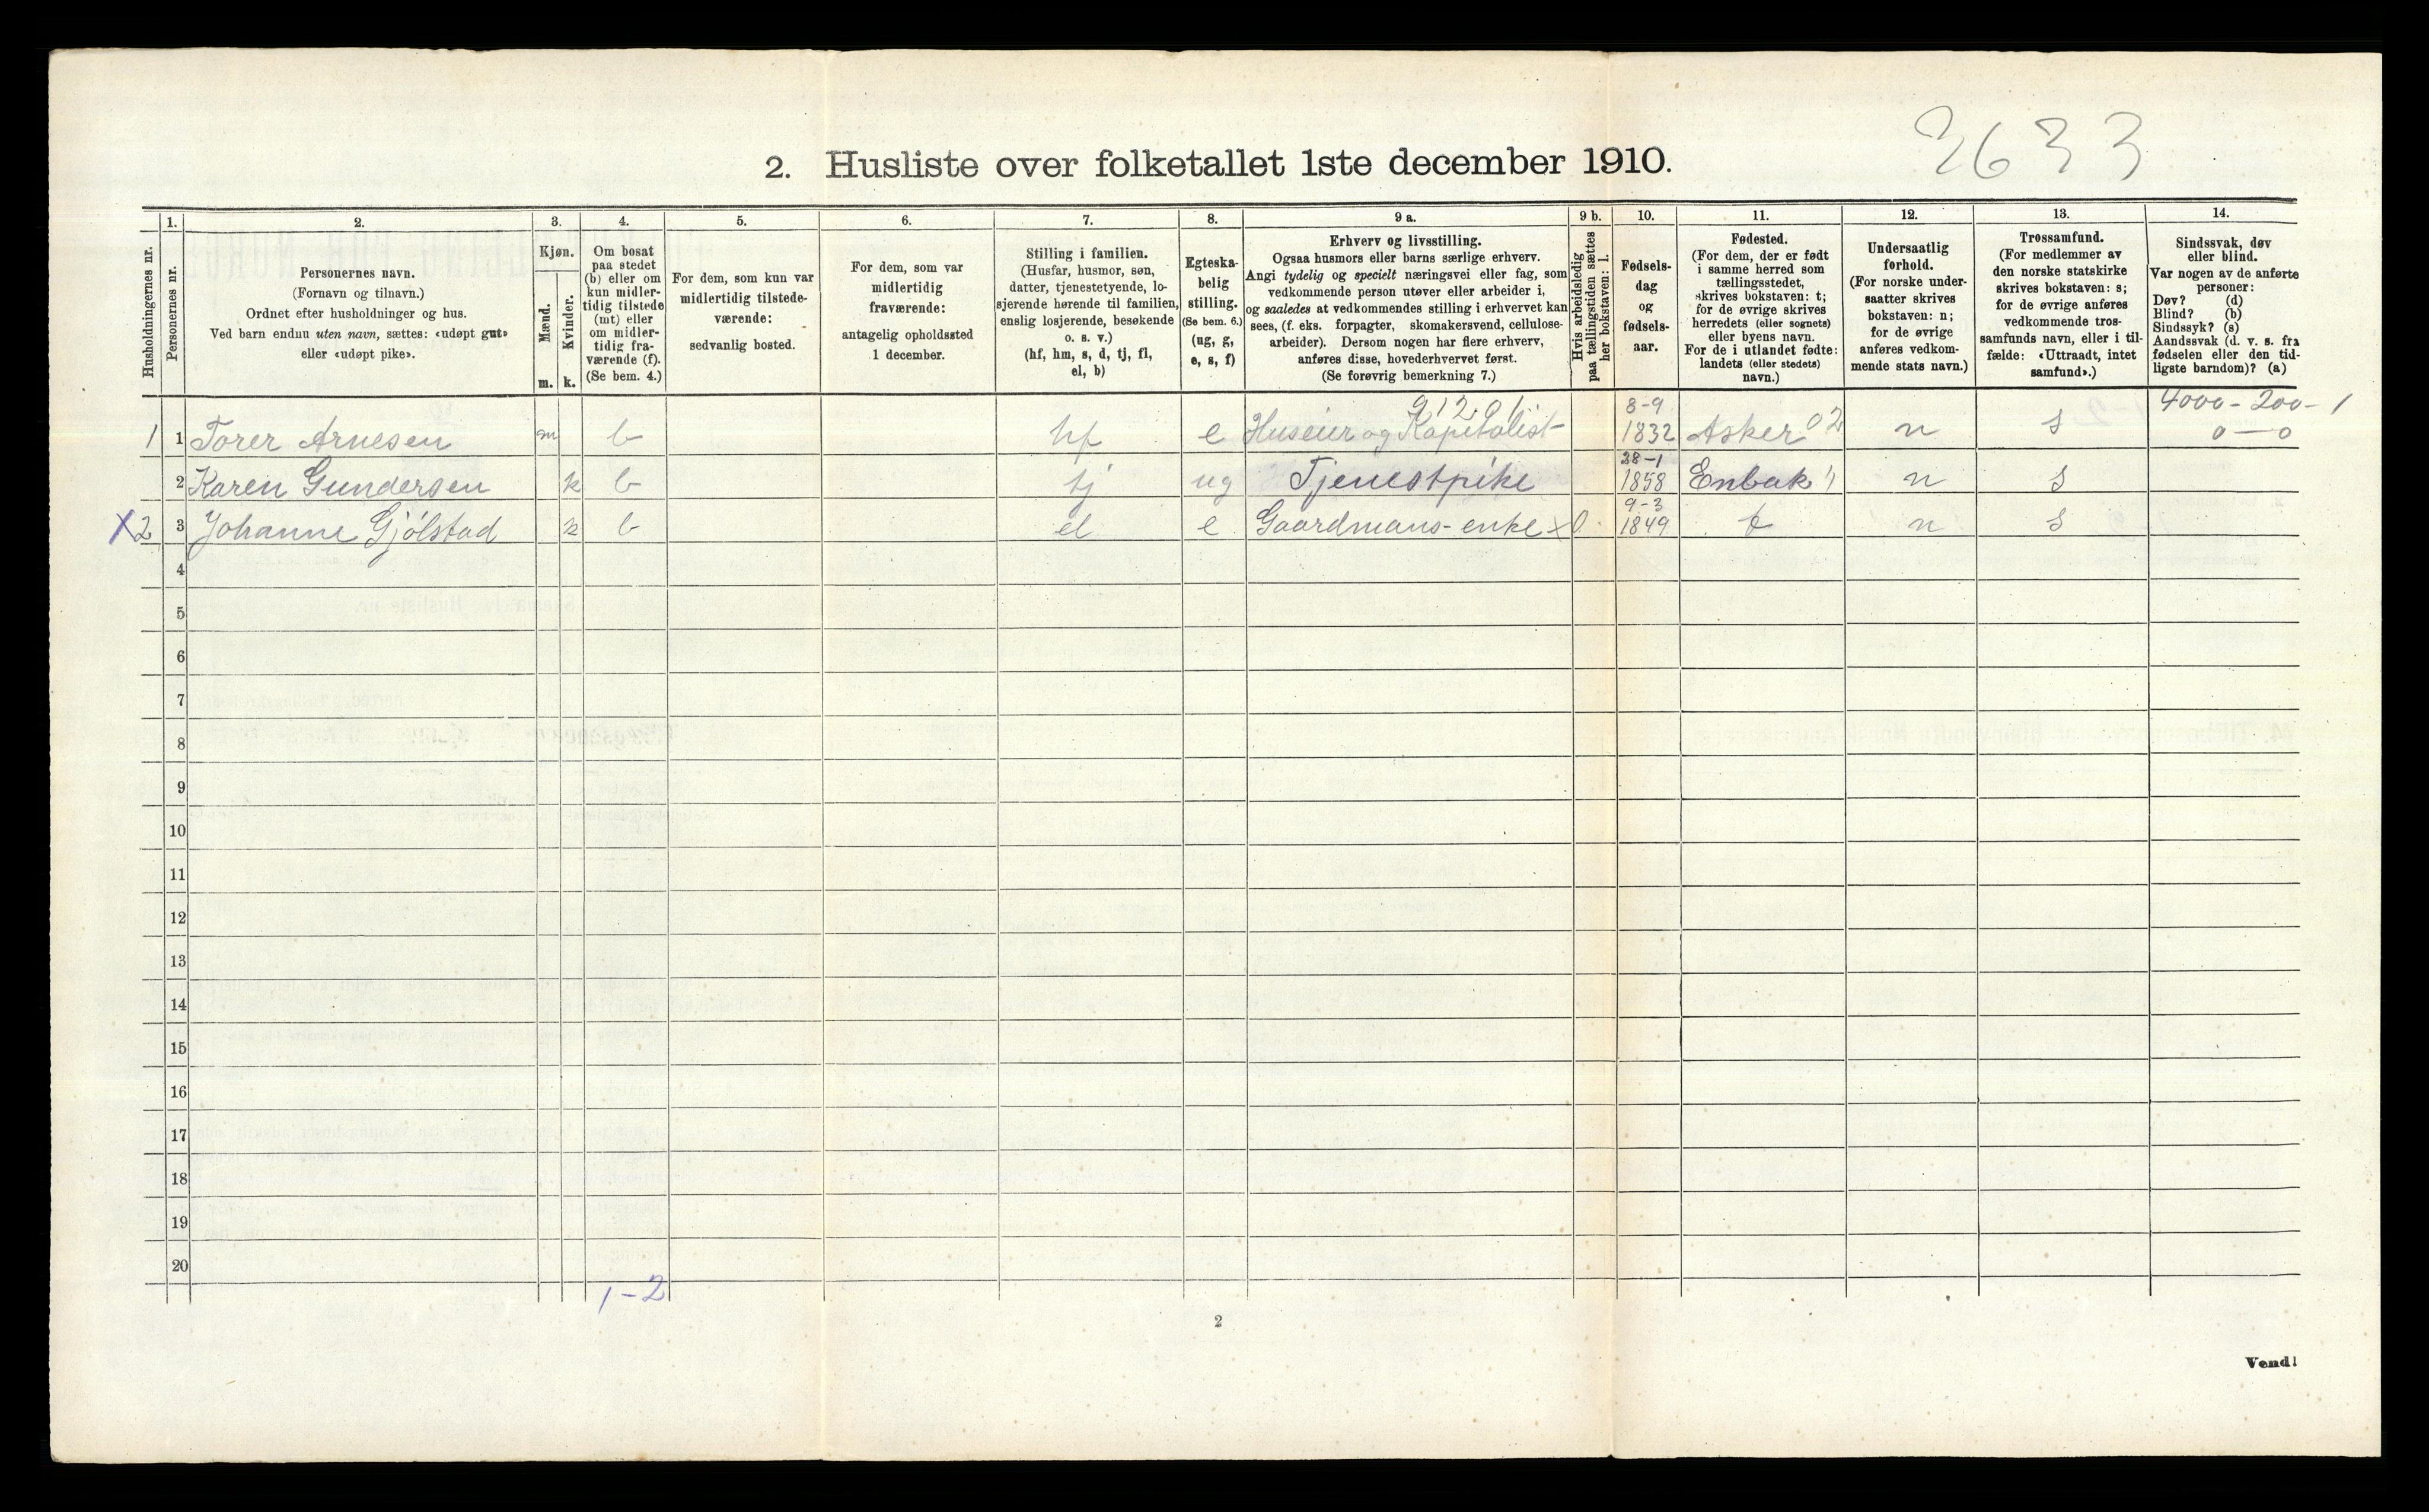 2633
2. Husliste over folketallet 1ste december 1910.
Husholdningernes nr.
1.
Personernes nr.
2.
Personernes navn.
(Fornavn og tilnavn.)
Ordnet efter husholdninger og hus.
Ved barn endnu uten navn, sættes: «udøpt gut»
eller «udøpt pike».
3.
Kjøn.
Mænd.
m.
Kvinder.
k.
4.
Om bosat
paa stedet
(b) eller om
kun midler-
tidig tilstede
(mt) eller
om midler-
tidig fra-
værende (f).
(Se bem. 4.)
5.
For dem, som kun var
midlertidig tilstede-
værende:
sedvanlig bosted.
6.
For dem, som var
midlertidig
fraværende:
antagelig opholdssted
1 december.
7.
Stilling i familien.
(Husfar, husmor, søn,
datter, tjenestetyende, lo-
sjerende hørende til familien,
enslig losjerende, besøkende
o. s. v.)
(hf, hm, s, d, tj, fl,
el, b)
8.
Egteska-
belig
stilling.
(Se bem. 6.)
(ug, g,
e, s, f)
9 a.
Erhverv og livsstilling.
Ogsaa husmors eller barns særlige erhverv.
Angi tydelig og specielt næringsvei eller fag, som
vedkommende person utøver eller arbeider i,
og saaledes at vedkommendes stilling i erhvervet kan
sees, (f. eks. forpagter, skomakersvend, cellulose-
arbeider). Dersom nogen har flere erhverv,
anføres disse, hovederhvervet først.
(Se forøvrig bemerkning 7.)
9 b.
Hvis arbeidsledig
paa tællingstiden sættes
her bokstaven: l.
10.
Fødsels-
dag
og
fødsels-
aar.
11.
Fødested.
(For dem, der er født
i samme herred som
tællingsstedet,
skrives bokstaven: t;
for de øvrige skrives
herredets (eller sognets)
eller byens navn.
For de i utlandet fødte:
landets (eller stedets)
navn.)
12.
Undersaatlig
forhold.
(For norske under-
saatter skrives
bokstaven: n;
for de øvrige
anføres vedkom-
mende stats navn.)
13.
Trossamfund.
(For medlemmer av
den norske statskirke
skrives bokstaven: s;
for de øvrige anføres
vedkommende tros-
samfunds navn, eller i til-
fælde: «Uttraadt, intet
samfund».)
14.
Sindssvak, døv
eller blind.
Var nogen av de anførte
personer:
Døv? (d)
Blind? (b)
Sindssyk? (s)
Aandssvak (d. v. s. fra
fødselen eller den tid-
ligste barndom)? (a)
91201 8-9 4000-200-1
1 1 Torer Arnesen m b hf e Huseier og Kapitalist 1832 Asker 02 n s 0-0
28-1
2 Karen Gundersen k b tj ug Tjenestpike 1858 Enbak n s
9-3
X2 3 Johanne Gjølstad k b el e Gaardmans-enke x0 1849 t n s
4
5
6
7
8
9
10
11
12
13
14
15
16
17
18
19
20
1-2
2
Vend!